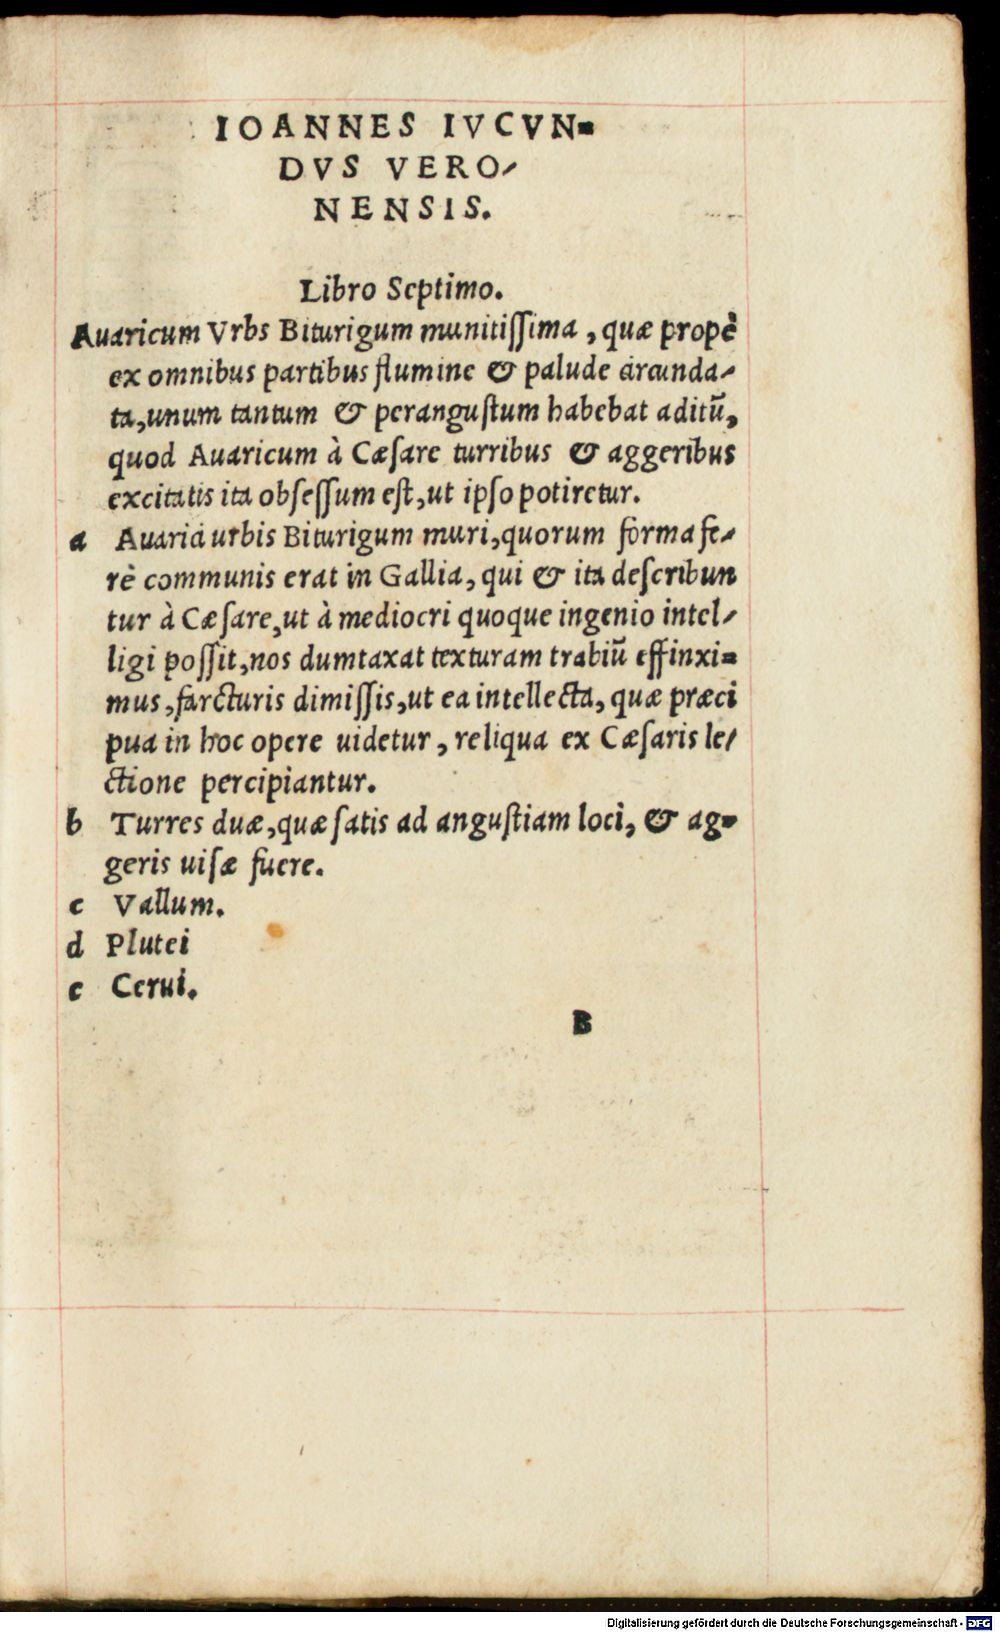 IOANNES IVCVN-
DVS VERO-
NENSIS.
Libro Septimo.
Auaricum Vrbs Biturigum munitissima, quæ propè
ex omnibus partibus flumine & palude circunda-
ta, unum tantum & perangustum habebat aditū,
quod Auaricum à Cæsare turribus & aggeribus
excitatis ita obsessum est, ut ipso potiretur.
a Auarici urbis Biturigum muri, quorum forma fe-
rè communis erat in Gallia, qui & ita describun
tur à Cæsare, ut à mediocri quoque ingenio intel-
ligi possit, nos dumtaxat texturam trabiū effinxi-
mus, farcturis dimissis, ut ea intellecta, quæ præci
pua in hoc opere uidetur, reliqua ex Cæsaris le-
ctione percipiantur.
b Turres duæ, quæ satis ad angustiam loci, & ag-
geris uisæ fuere.
c Vallum.
d Plutei
e Cerui.
B
Digitalisierung gefördert durch die Deutsche Forschungsgemeinschaft - DFG